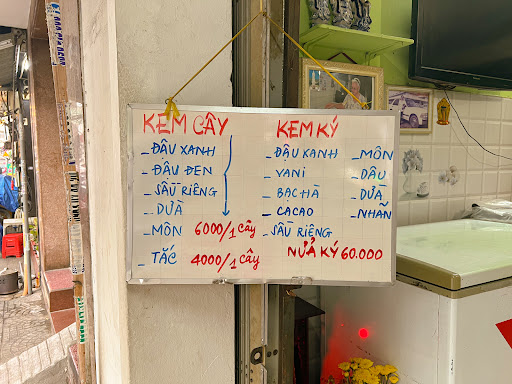 KEM CÂY
- ĐẬU XANH
- ĐẬU ĐEN
- SẦU RIÊNG
- DỪA
- MÔN 6000/1 CÂY
- TẮC 4000/1 CÂY
KEM KÝ
- ĐẬU XANH
- VANI
- BẠC HÀ
- CACAO
- SẦU RIÊNG
- MÔN
- DÂU
- DỪA
- NHÃN
NỬA KÝ 60.000